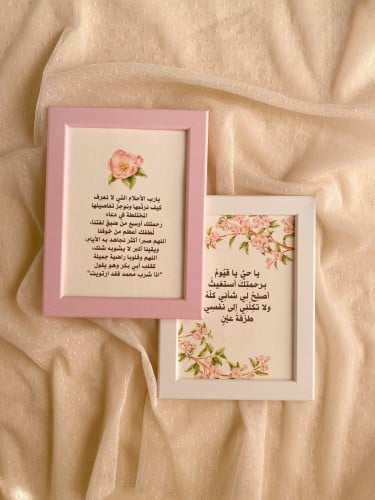 يارب الأحلام التي لا نعرف
كيف نرتّبها ونوجز تفاصيلها
المختلطة في دعاء
رحمتك أوسع من ضيق لغتنا،
لطفك أعظم من خوفنا
اللهم صبرا أكثر نجاهد به الأيام،
ويقينا أكبر لا يشوبه شك،
اللهم وقلوبا راضية جميلة
كقلب أبي بكر وهو يقول
"اذا شرب محمد فقد ارتويت"
يا حيّ يا قيّومُ
برحمتك أستغيثُ
أصلح لي شأني كلّهُ
ولا تكلني إلى نفسي
طرْفَة عيْنٍ